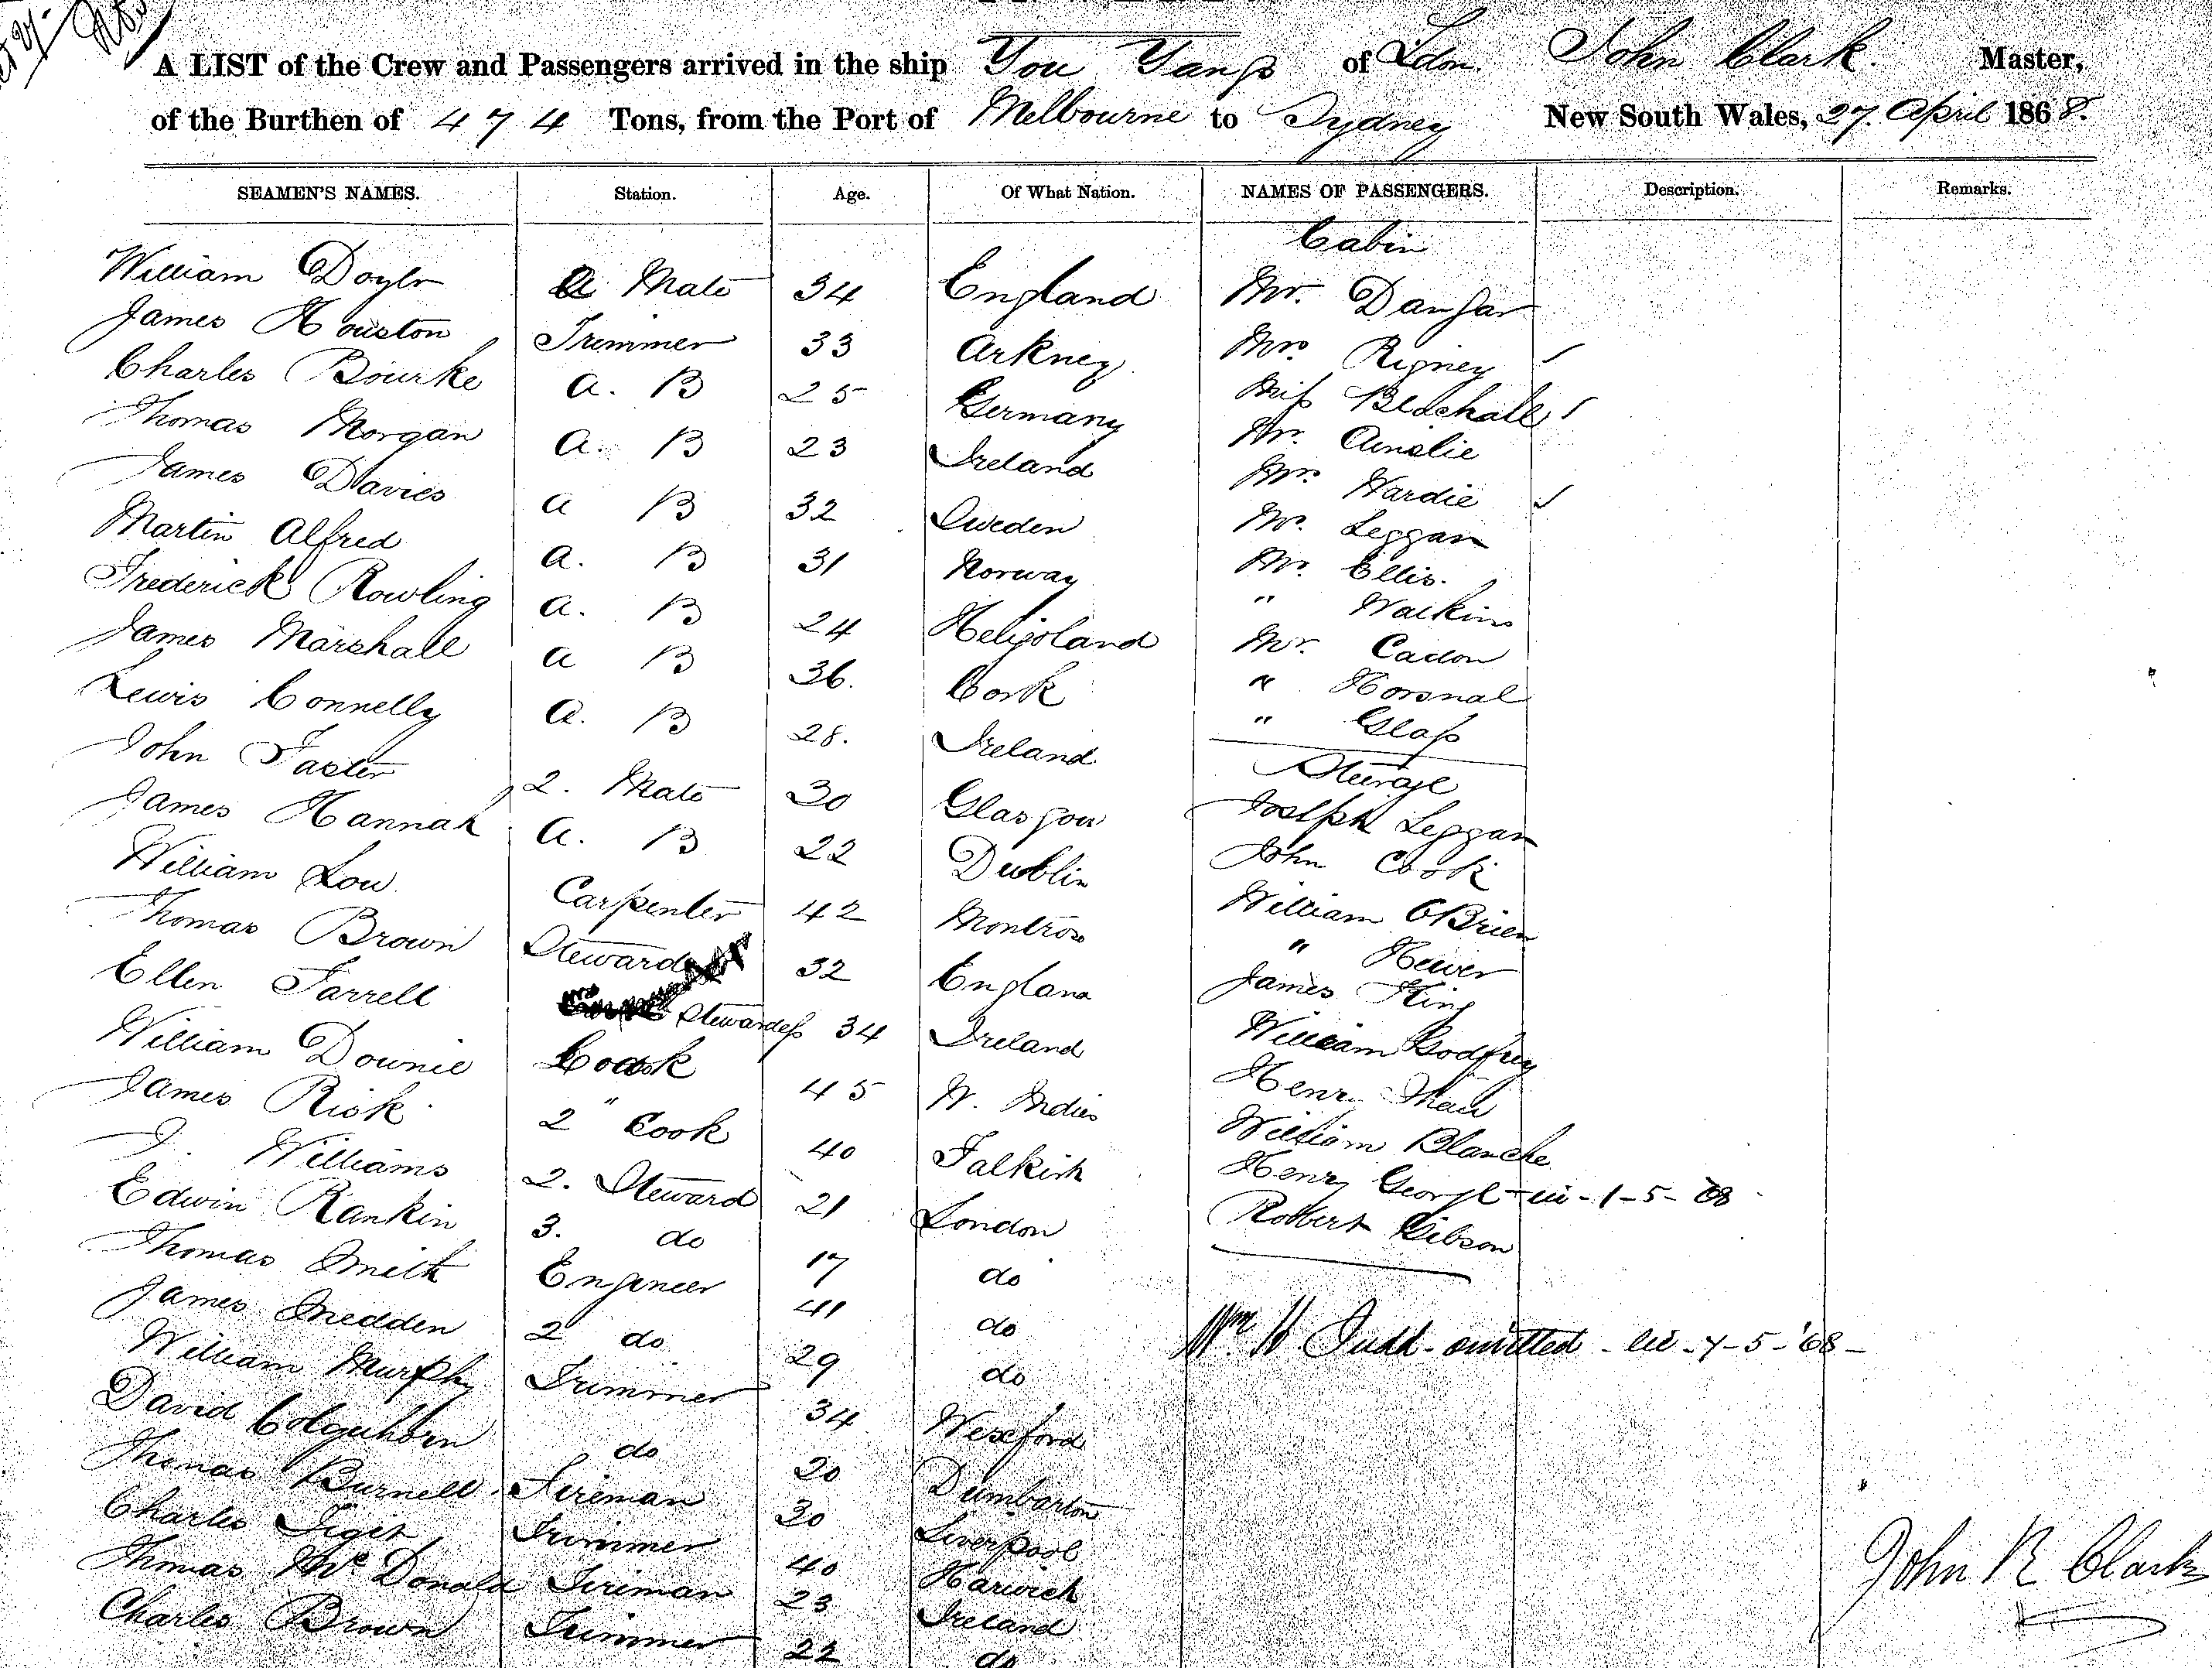 A LIST of the Crew and Passengers arrived in the ship You Yangs of Ldon. John Clark. Master,
of the Burthen of 474 Tons, from the Port of Melbourne to Sydney New South Wales, 27. April 1868.
SEAMEN'S NAMES. Station. Age. Of What Nation. NAMES OF PASSENGERS. Description. Remarks.
Cabin
William Doyle Mate 34 England Mr. Dangar
James Houston Trimmer 33 Arkney Mrs Rigney
Charles Bourke A. B 25 Germany Miss Blachall
Thomas Morgan A. B 23 Ireland Mr. Ainslie
James Davies A B 32 Sweden Hardie
Martin Alfred A. B 31 Norway Mr. Leggan
Frederick Rowling A. B 24 Heligoland Mr. Ellis.
James Marshall A B 36. Cork " Watkins
Lewis Connelly A. B 28. Ireland Mr.
John Faster 2. Mate 30 Glasgow " Horsnal
James Hannah A. B 22 Dublin " Glass
William Low Carpenter 42 Montrose Steerage
Thomas Brown Steward 32 England Joseph Leggan
Ellen Farrell Stewardess 34 Ireland John Cook
William Downie Cook 45 W. Indies William OBrien
James Risk 2" Cook 40 Falkirk " Hewer
J. Williams 2. Steward 21 London James King
Edwin Rankin 3. do 17 do William Godfrey
Thomas Smith Engineer 41 do Henry Shaw
James Snedden 2 do 29 do William Blanche
William Murphy Trimmer 34 Wexford Henry George - 1-5-68
David Colquhoun do 20 Dumbarton Robert Gibson
Thomas Burnell Fireman 30 Liverpool Wm H Judd - omitted - 7-5-'68-
Charles Trimmer 40 Harwich
Thomas McDonald Fireman 23 Ireland
Charles Brown Trimmer 22 do
John R Clark